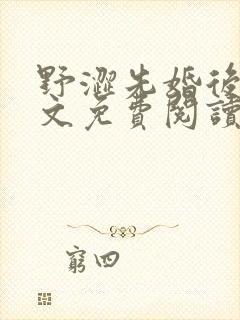 野澀先婚後
文免費閱讀
窮四